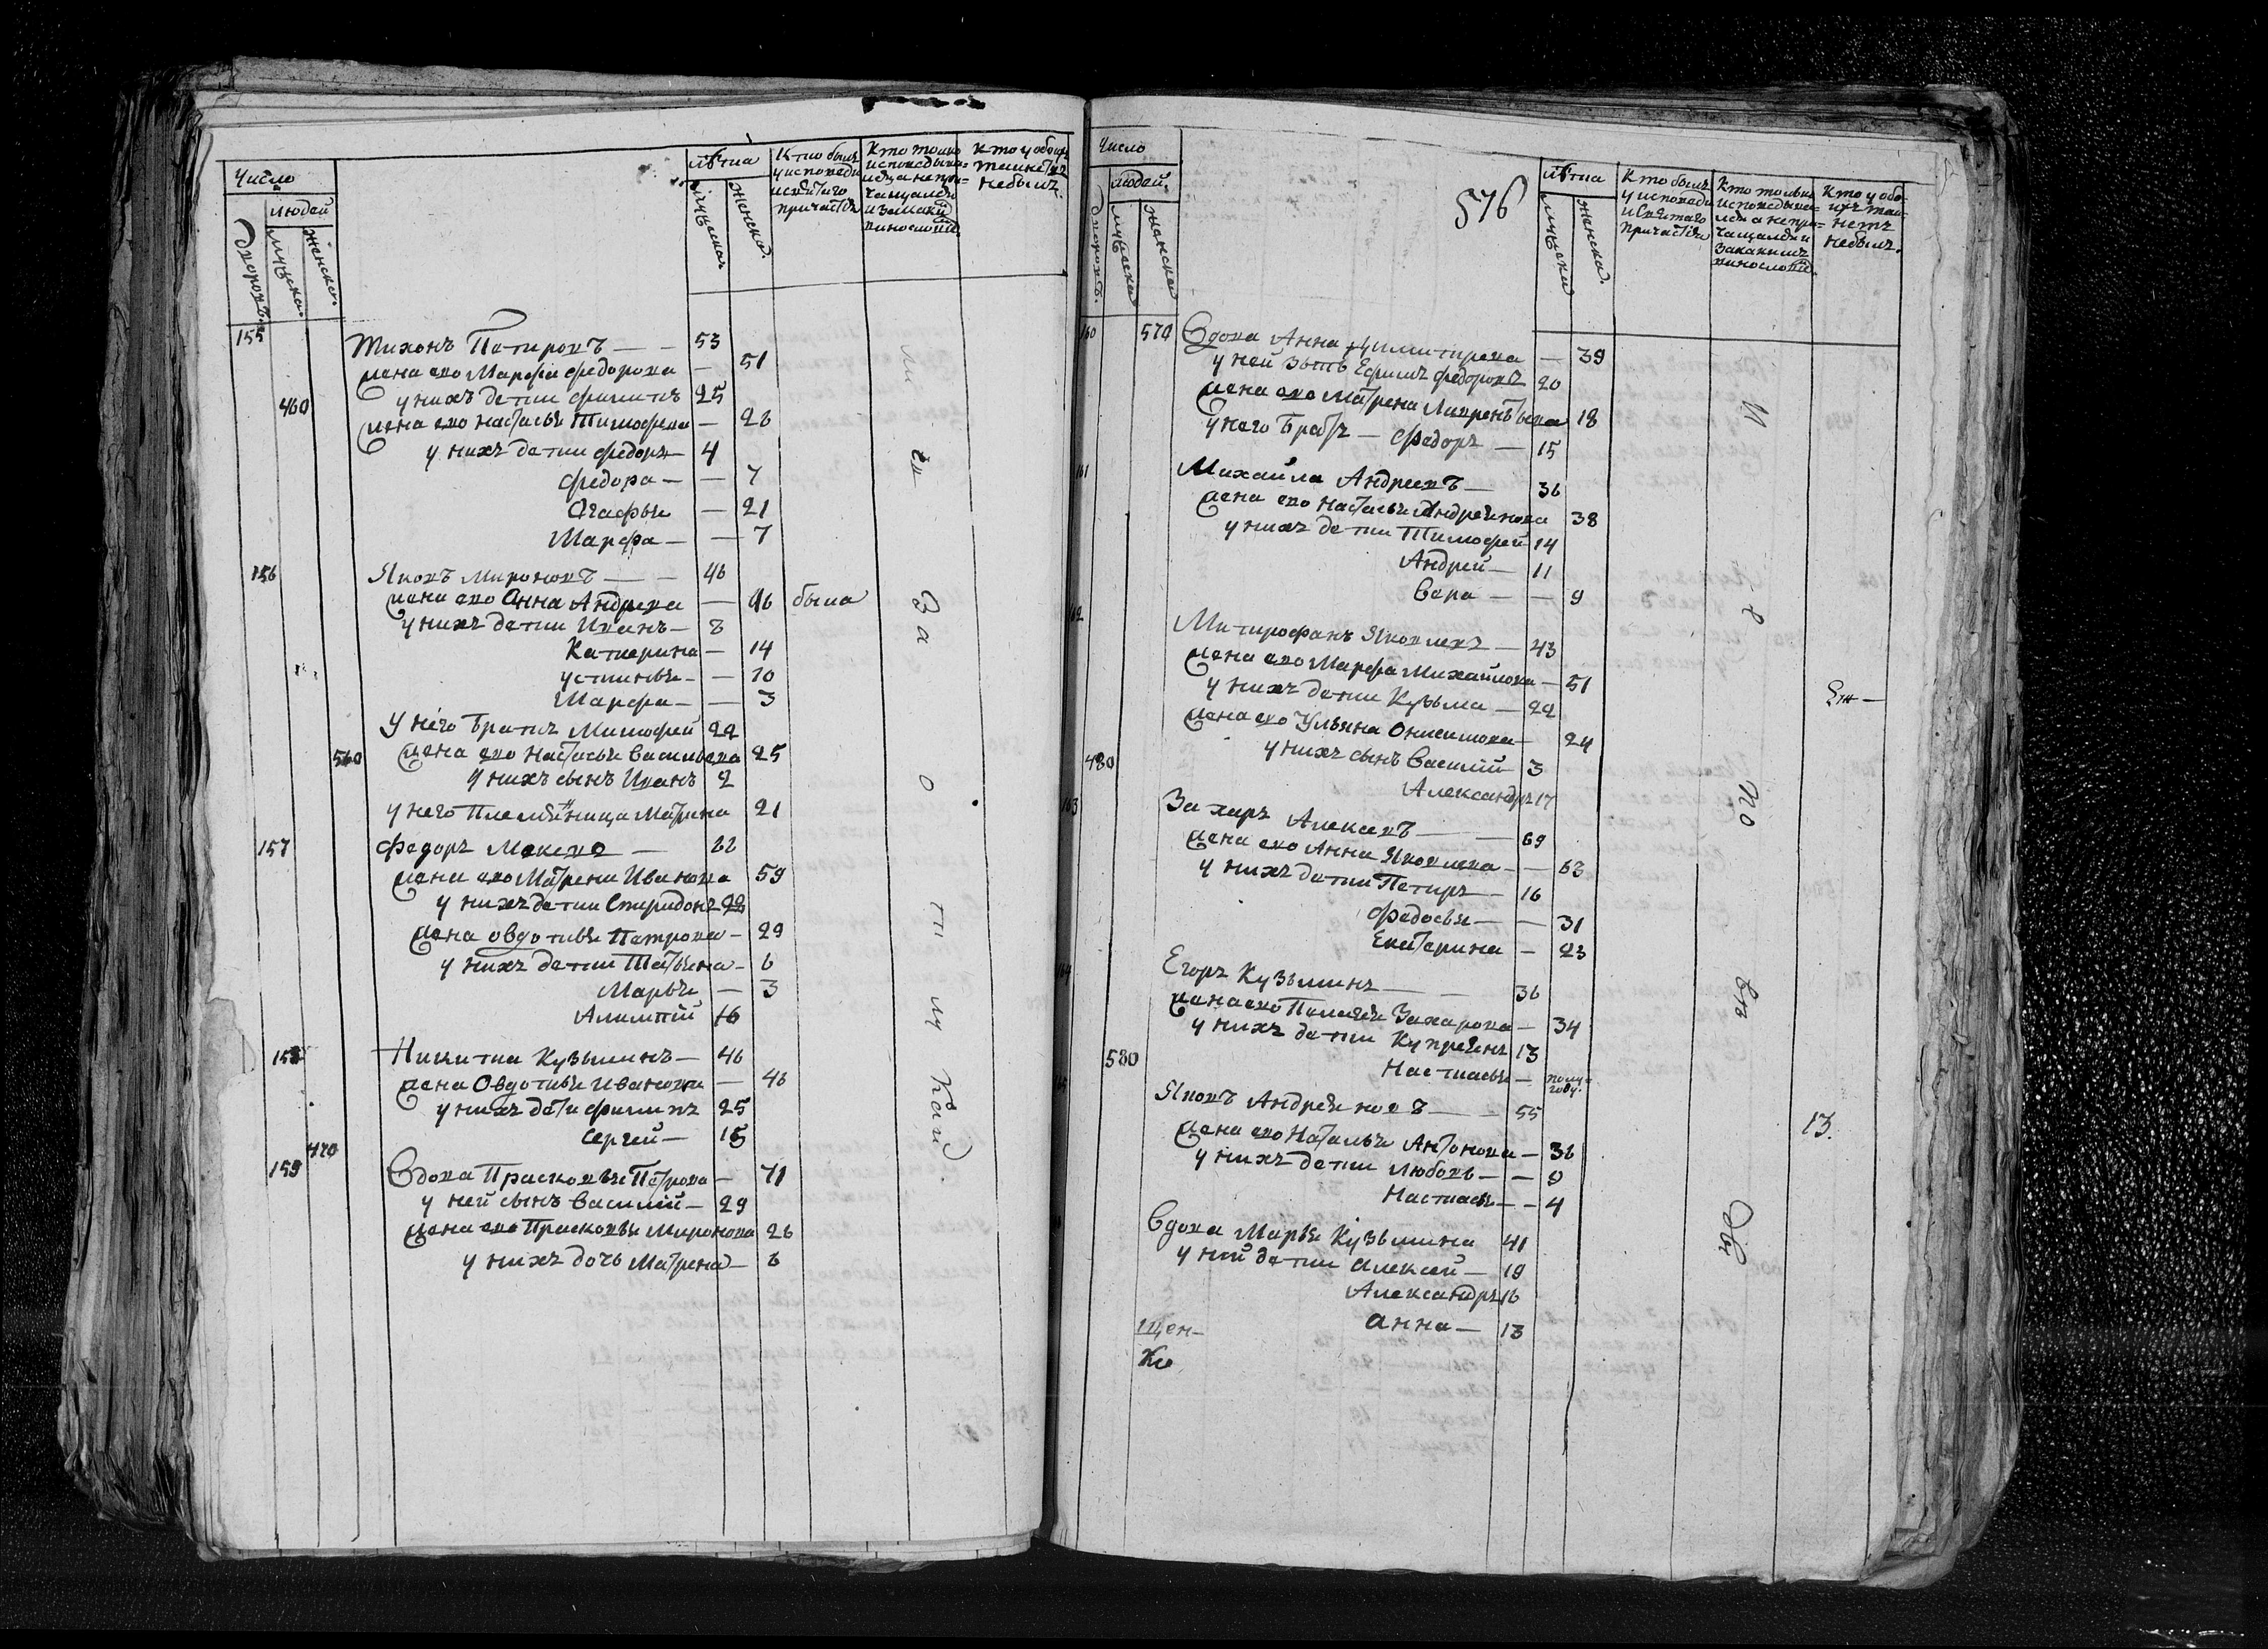 Число
людей
дворовъ. мужеска. женска.
лѣта
мужеска женска.
Кто былъ у исповеди и святаго причастія
Кто токмо исповедыва=лся а не при=чащался и за какимъ винословіемъ.
Кто у обоихъ таинствъ не былъ.
155 Тихонъ Петровъ — — 53
жена ево Марфа федорова — 51
у нихъ дети филипъ 25
460
жена ево настасья Тимофева — 26
у нихъ дети федоръ — 4
федора — — 7
Агафья — 21
Марфа — — 7
156 Яковъ Мироновъ — — 46
жена ево Анна Андрева — 46 была
у нихъ дети Иванъ — 8
Катерина — 14
устинья — — 10
Марфа — — 3
У него братъ Тимофей 22
560 жена ево Настасья Васильева 25
у нихъ сынъ Иванъ 2
у него племянница Матрена 21
157 Федоръ Мокевъ —
жена ево Матрена Иванова 59
у нихъ дети Спиридонъ 28
жена овдотья Петрова — 29
у нихъ дети Татьяна — 6
Марья — 3
Алимпій 16
158 Никита Кузьминъ — 46
жена Овдотья Иванова — 46
у нихъ дети филипъ 25
Сергей — 15
470
159 Вдова Прасковья Петрова — 71
у ней сынъ Василій — 29
жена ево Прасковья Миронова 26
у нихъ дочь Матрена — 6
За
о
т
лу
кою
Число
людей.
дворовъ. мужеска женска
576
лѣта
мужеска женска.
Кто былъ у исповеди и Святаго Причастія
Кто только исповедыва=лся а не при=чащался и за какимъ винословіемъ.
Кто у обо=ихъ таи=нствъ не былъ.
160 570 Вдова Анна Димитрева — 39
у ней зять Ефимъ федоровъ 20
жена ево Матрена Лаврентьева 18
у него братъ — федоръ — 15
161 Михайла Андреевъ — 36
жена ево Настасья Андреянова 38
у нихъ дети Тимофей 14
Андрей — 11
Вера — — 9
162 Митрофанъ Яковлевъ — 43
жена ево Марфа Михайлова — 51
у нихъ дети Кузьма — 22
жена ево Ульяна Онисимова — 24
у нихъ сынъ Василій 3
480
Александръ 17
163 Захаръ Алексевъ — — 69
жена ево Анна Яковлева — — 63
у нихъ дети Петръ — 16
Федосья — — 31
Екатерина — 23
164 Егоръ Кузьминъ — — 36
жена ево Пелагея Захарова — 34
у нихъ дети Купреянъ 13
580
Настасья — полугоду.
Яковъ Андреяновъ — — 55
13.
жена ево Наталья Антонова — 36
у нихъ дети Любовь — — 9
Настасья — — 4
Вдова Марья Кузьмина 41
у ней дети Алексей — 19
Александръ 16
Анна — 13
И
по
бы